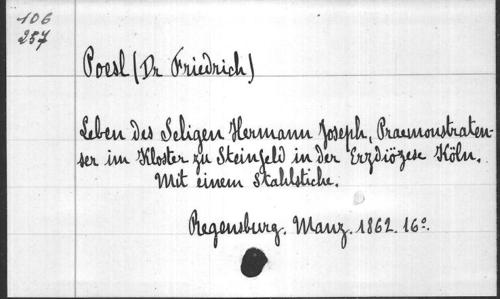 106
257
Poesl (Dr Friedrich)
Leben des Seligen Hermann Joseph, Praemonstraten-
ser im Kloster zu Steinfeld in der Erzdiözese Köln.
Mit einem Stahlstiche.
Regensburg. Manz. 1862. 16º.